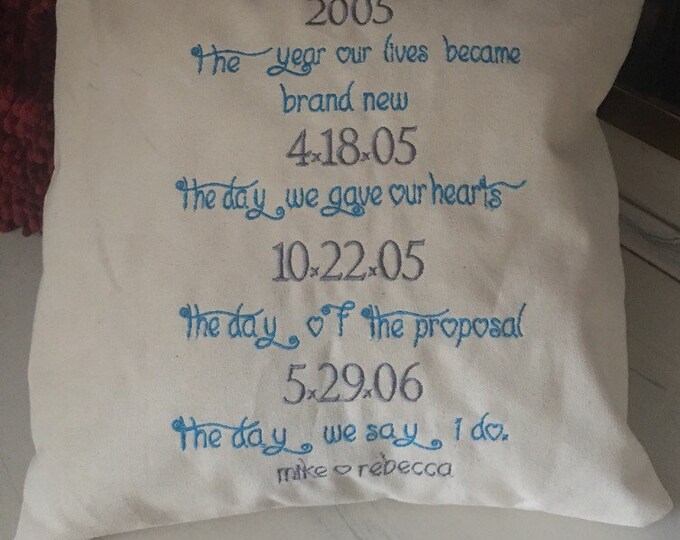 2005
the year our lives became
brand new
4x18x05
the day we gave our hearts
10x22x05
the day of the proposal
5x29x06
the day we say I do.
mike ♡ rebecca